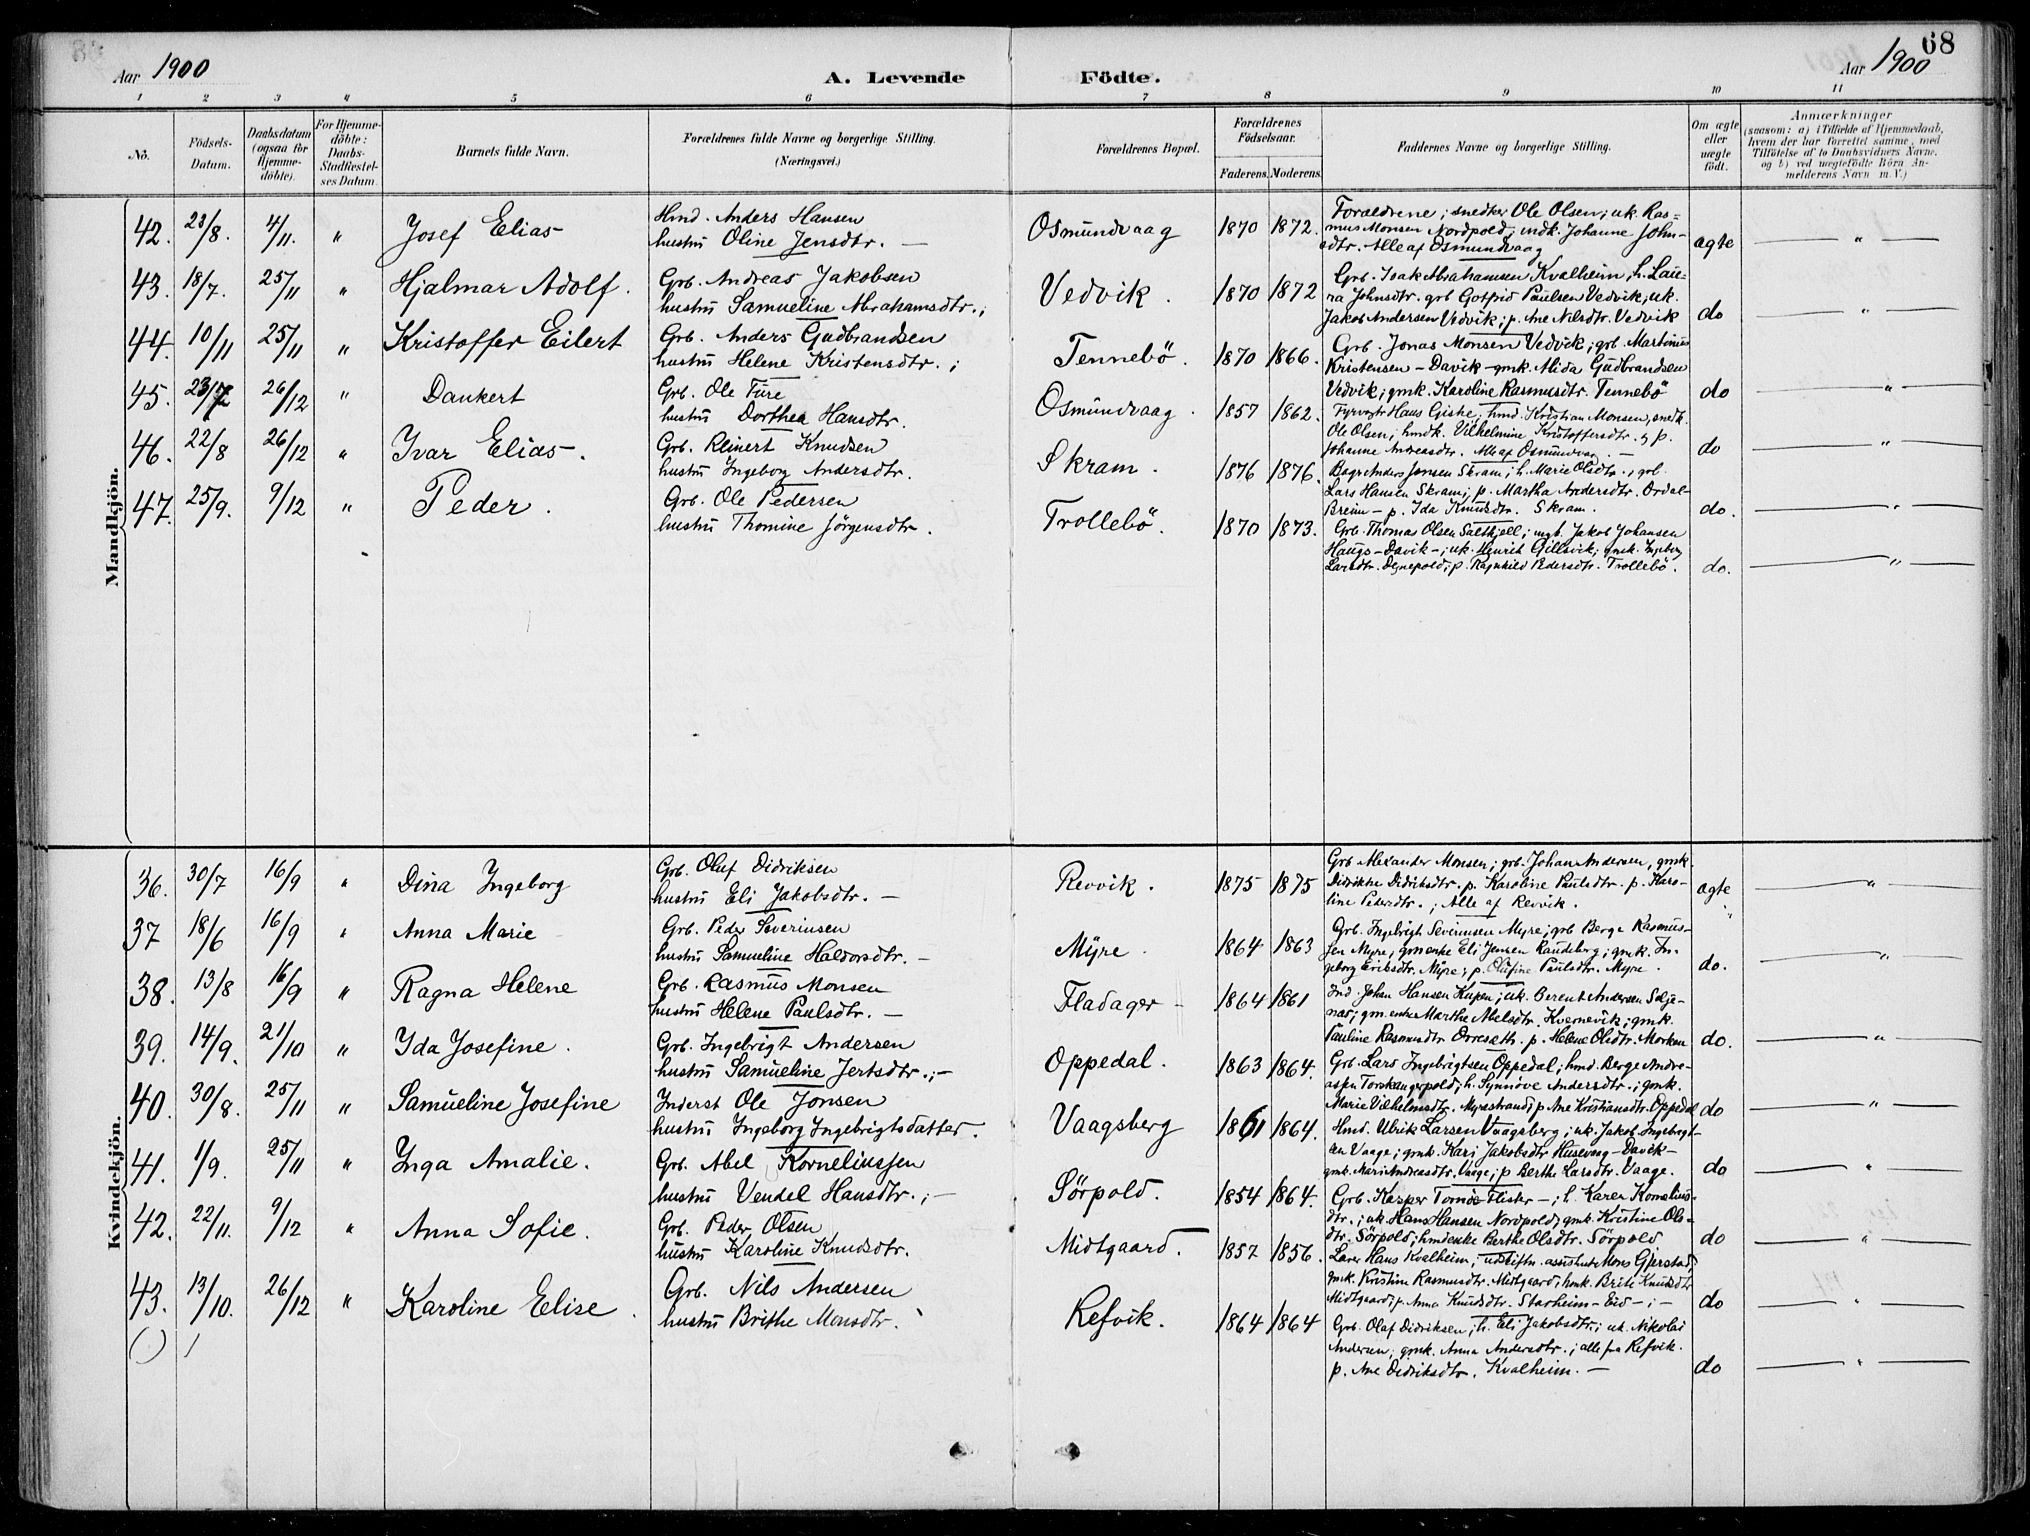 68
Aar 1900
A. Levende Födte.
Aar 1900
1 2 3 4 5 6 7 8 9 10 11
No.
Födsels-
Datum.
Daabsdatum
(ogsaa for
Hjemme-
döbte).
For Hjemme-
döbte:
Daabs-
Stadfæstel-
ses Datum.
Barnets fulde Navn.
Forældrenes fulde Navne og borgerlige Stilling.
(Næringsvei.)
Forældrenes Bopæl.
Forældrenes
Födselsaar.
Faderens. Moderens.
Faddernes Navne og borgerlige Stilling.
Om ægte
eller
uægte
födt.
Anmærkninger
(saasom: a) i Tilfælde af Hjemmedaab,
hvem der har forrettet samme, med
Tilföielse af to Daabsvidners Navne,
og b) ved uægtefödte Börn An-
melderens Navn m. V.)
Mandkjön.
42. 23/8. 4/11. " Josef Elias
Hmd. Anders Hansen
hustru Oline Jensdtr. —
Osmundvaag 1870 1872.
Forældrene; snedker Ole Olsen; uk. Ras-
mus Monsen Nordpold; indk. Johanne John-
sdtr. Alle af Osmundvaag
ægte "
43. 18/7. 25/11 " Hjalmar Adolf.
Grb. Andreas Jakobsen
hustru Samueline Abrahamsdtr.;
Vedvik. 1870 1872
Grb. Isak Abrahamsen Kvalheim, h. Lau-
ra Johnsdtr. grb Gotfrid Paulsen Vedvik; uk.
Jakob Andersen Vedvik; p. Ane Nilsdtr. Vedvik
do "
44. 10/11 25/11 " Kristoffer Eilert
Grb. Anders Gudbrandsen
hustru Helene Kristensdtr.;
Tennebö. 1870 1866.
Grb. Jonas Monsen Vedvik; grb. Martinus
Kristensen – Davik – gmk. Alida Gudbrandsen
Vedvik; gmk. Karoline Rasmusdtr. Tennebö
do "
45. 26/12 " Dankert
Grb. Ole Ture
hustru Dorthea Hansdtr.
Osmundvaag. 1857 1862.
Fyrvogtr Hans Giske; hmd. Kristian Monsen, snedk.
Ole Olsen; hmdk. Vilhelmine Kristoffersdtr. og p.
Johanne Andreasdtr. Alle af Osmundvaag. —
do "
46. 22/8 26/12 " Ivar Elias.
Grb. Reinert Knudsen
hustru Ingeborg Andersdtr.
Skram. 1876 1876.
Anders Jonsen Skram; h. Marie Olsdtr., grb.
Lars Hansen Skram; p. Martha Andersdtr. Ordal-
Breim – p. Ida Knudsdtr. Skram.
do. "
47. 25/9. 9/12 " Peder.
Grb. Ole Pedersen
hustru Thomine Jörgensdtr.
Trollebö. 1870 1873.
Grb. Thomas Olsen Saltkjell; ungk. Jakob Johansen
Haugs – Davik –; uk. Henrik Gillsvik; gmk. Ingeborg
Larsdtr. Degnepold; p. Ragnhild Pedersdtr. Trollebö.
do. "
Kvindekjön.
36. 30/7 16/9 " Dina Ingeborg
Grb. Oluf Didriksen
hustru Eli Jakobsdtr. —
Revvik. 1875 1875
Grb Alexander Monsen; grb. Johan Andersen, gmk.
Didrikke Didriksdtr. p. Karoline Paulsdtr. p. Karo-
line Pedersdtr.; Alle af Revvik.
ægte "
37 18/6 16/9 " Anna Marie
Grb. Peder Severinsen
hustru Samueline Haldorsdtr. —
Myre. 1864 1863
Grb. Ingebrigt Severinsen Myre; grb Berge Rasmus-
sen Myre, gmenke Eli Jensen Raudeberg; gmk. In-
geborg Eriksdtr. Myre; p. Olufine Paulsdtr. Myre.
do. "
38. 13/8 16/9 " Ragna Helene
Grb. Rasmus Monsen
hustru Helene Paulsdtr. —
Fladager – 1864 1861
Ind. Johan Hansen Kupen; uk. Berent Andersen Selje-
nas; gm.enke Marthe Abelsdtr. Kvernevik; gmk.
Pauline Rasmusdtr Orresæth. p. Helene Olsdtr. Morken
do. "
39. 14/9. 21/10 " Ida Josefine.
Grb. Ingebrigt Andersen
hustru Samueline Jertsdtr.; —
Oppedal. 1863 1864.
Grb. Lars Ingebrigtsen Oppedal; hmd. Berge Andre-
assen Torskangerpold; h. Synnöve Andersdtr.; gmk.
Marie Vilhelmsdtr. Myrestrand; p Ane Kristiansdtr. Oppedal
do "
40. 30/8. 25/11 " Samueline Josefine
Inderst Ole Jonsen
hustru Ingeborg Ingebrigtsdatter.
Vaagsberg 1861 1864.
Hmd. Ulrik Larsen Vaagsberg; uk. Jakob Ingebrigt-
sen Vaage; gmk. Kari Jakobsdtr Husevaag – Davik –
gmk. Mari Andreasdtr. Vaage; p Berthe Larsdtr. Vaage.
do "
41. 1/9. 25/11 " Inga Amalie.
Grb. Abel Korneliussen
hustru Vendel Hansdtr.; —
Sörpold. 1854 1864.
Grb. Kasper Flister –; h. Karen Kornelius-
dtr.; uk. Hans Hansen Nordpold; gmk. Kristine Ols-
dtr. Sörpold; hmdenke Berthe Olsdtr. Sörpold
do "
42. 22/11. 9/12 " Anna Sofie.
Grb. Peder Olsen
hustru Karoline Knudsdtr.
Midtgaard. 1857 1856.
Lærer Hans Kvalheim; udskiftn. assistent Mons Gjerstad;
gmk. Kristine Rasmusdtr. Midtgaard; hmk. Brite Knudsdtr
Midtgaard; p. Anna Knudsdtr. Starheim – Eid –; –
do "
43. 13/10. 26/12 " Karoline Elise.
Grb. Nils Andersen
hustru Brithe Monsdtr.
Refvik. 1864 1864
Grb. Olaf Didriksen; h. Eli Jakobsdtr.; uk. Nikolai
Andersen; gmk. Anna Andersdtr.; alle fra Refvik.
p. Ane Didriksdtr. Kvalheim. —
do "